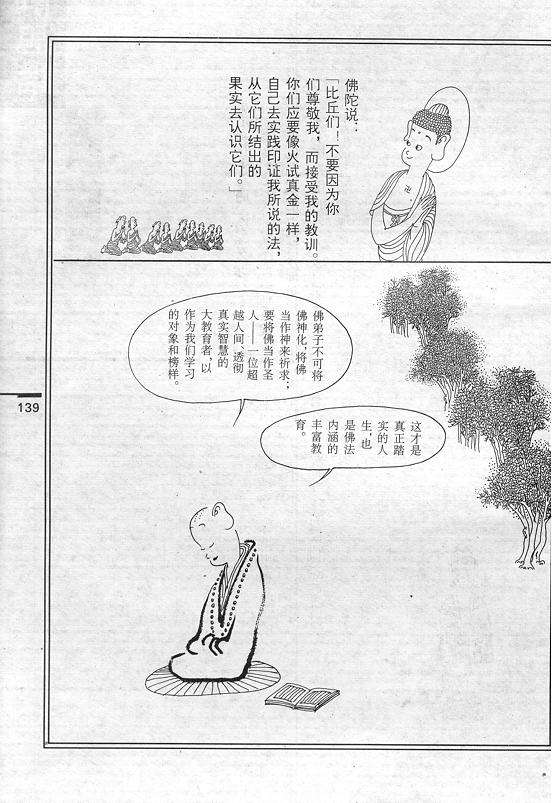 佛陀说：
「比丘们！不要因为你
们尊敬我，而接受我的教训。
你们应要像火试真金一样，
自己去实践印证我所说的法，
从它们所结出的
果实去认识它们。」
佛弟子不可将
佛神化，将佛
当作神来祈求；
要将佛当作圣
人——一位超
越人间、透彻
真实智慧的
大教育者，以
作为我们学习
的对象和榜样。
这才是
真正踏
实的人
生，也
是佛法
内涵的
丰富教
育。
139